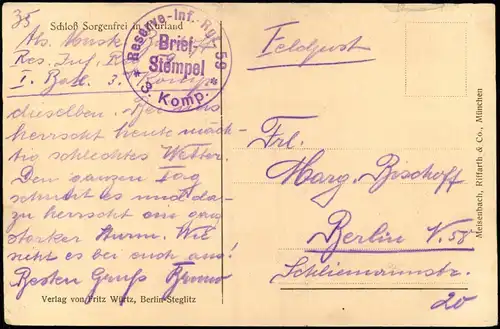 35
Schloß Sorgenfrei in Kurland
Abs. Musk.
Res. Inf. R
I. Batl. 3. Komp.
Reserve-Inf. Rgt. 59
Brief-
Stempel
* 3 Komp. *
dieselben. Bei uns
herrscht heute mäch-
tig schlechtes Wetter.
Den ganzen Tag
schneit es und da-
zu herrscht ein ganz
starker Sturm. Wie
sieht es bei euch aus!
Besten Gruß Bruno
Verlag von Fritz Würtz, Berlin-Steglitz
Feldpost
Frl.
Marg. Bischoff
Berlin N. 58
Schliemannstr.
20
Meisenbach, Riffarth & Co., München